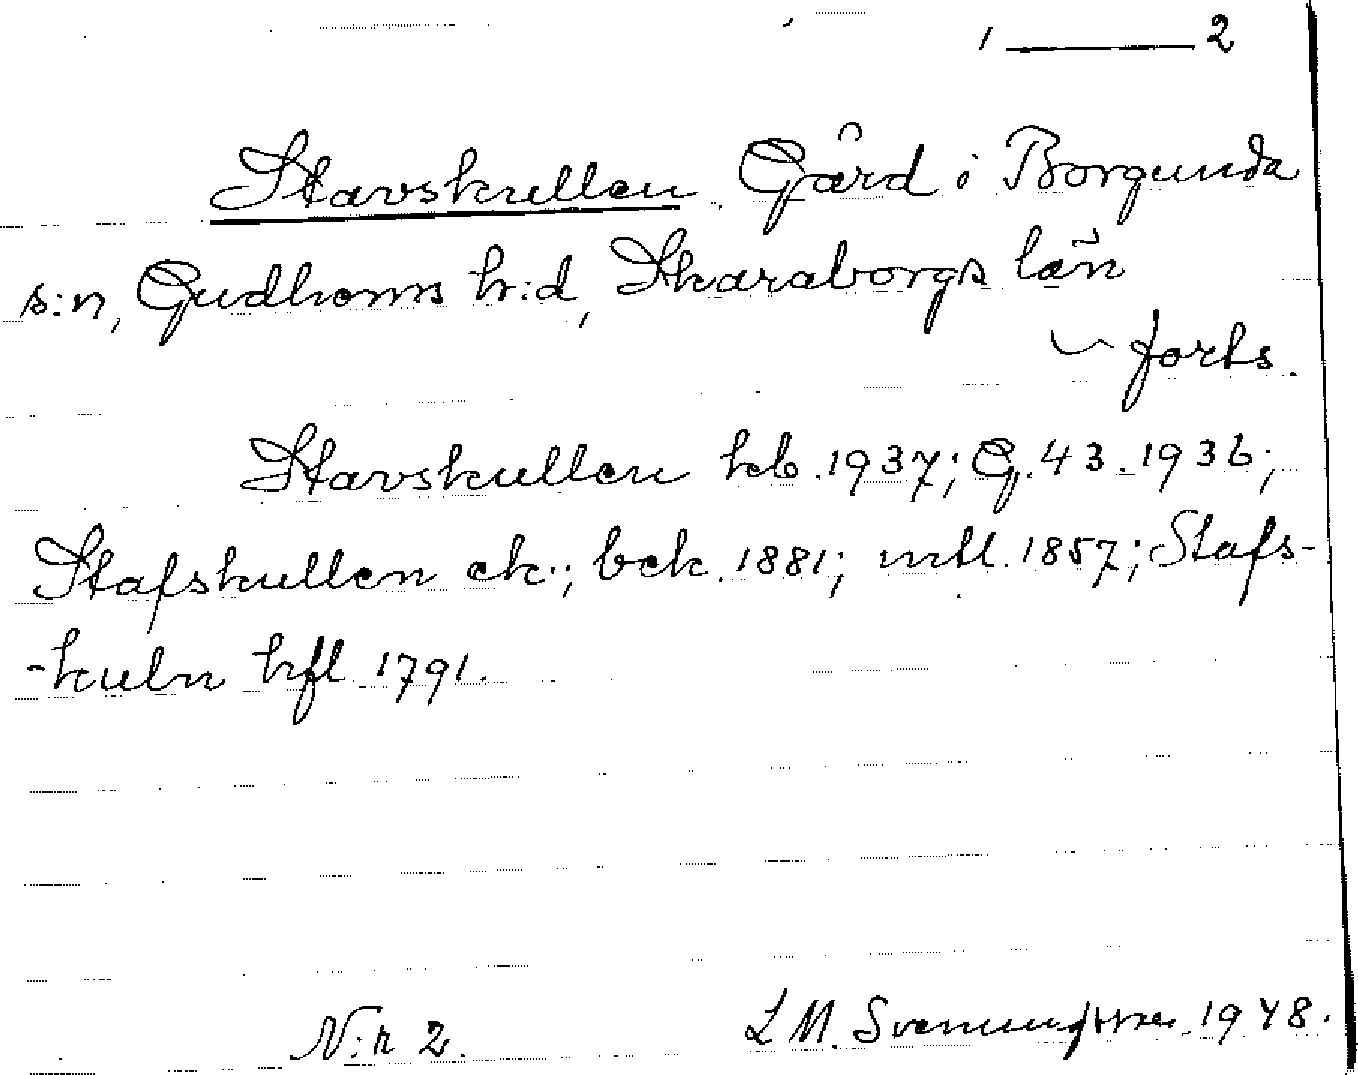 1 ——— 2
Stavskullen Gård i Borgunda
s:n, Gudhems h:d, Skaraborgs län
forts.
Stavskullen kb. 1937; G. 43. 1936;
Stafskullen ek.; bek. 1881; mtl. 1857; Stafs-
-kuln hfl 1791.
N:r 2. L M. Svenungsson 1948.